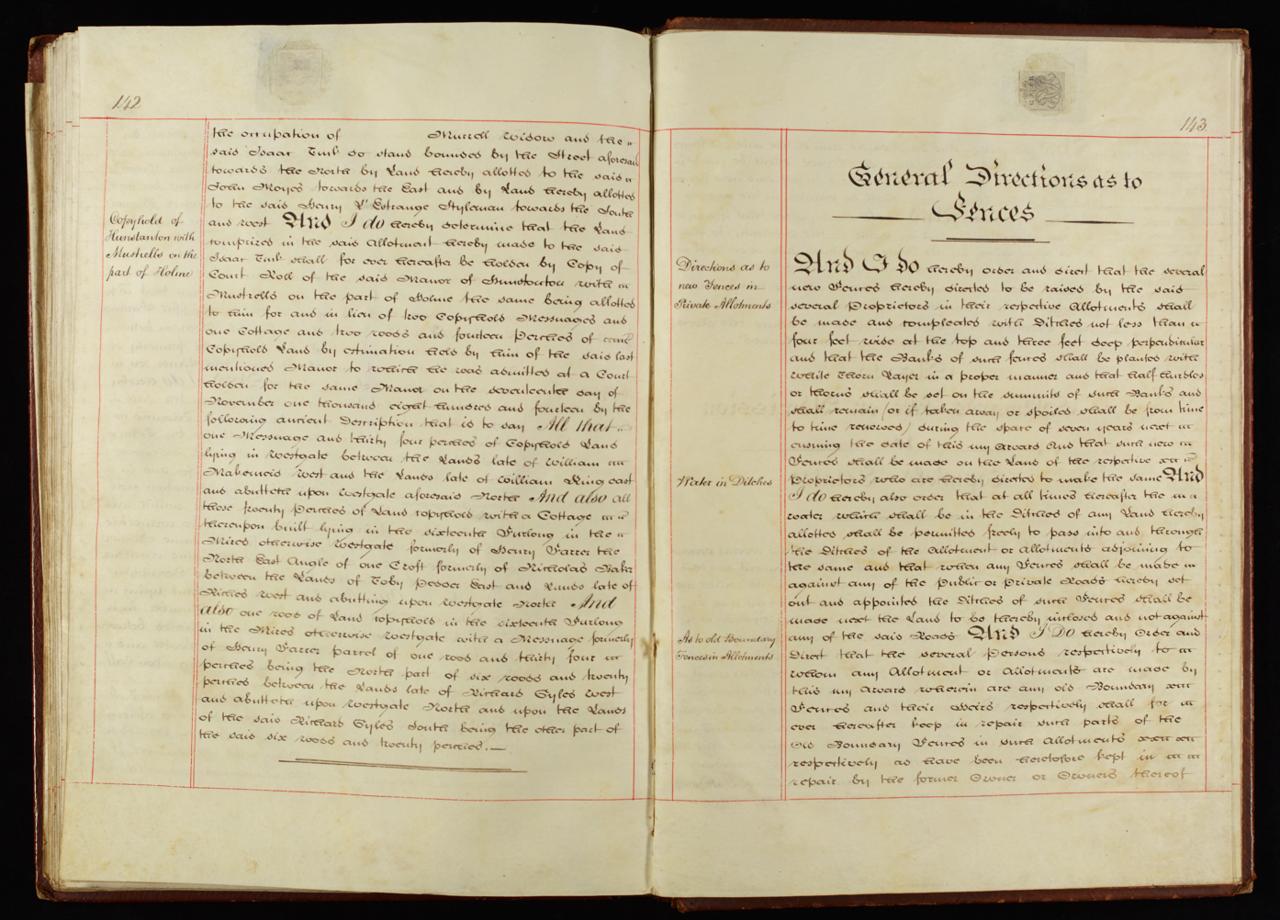 142
the occupation of Murrell Widow and the
said Isaac Tuck do stand bounded by the Street aforesaid
towards the North by Land hereby allotted to the said
John Moyes towards the East and by Land hereby allotted
to the said Henry L'Estrange Styleman towards the South
and west And I do hereby determine that the Land
comprized in the said Allotment hereby made to the said
Isaac Tuck shall for ever hereafter be holden by Copy of
Court Roll of the said Manor of Hunstanton with
Mustrells on the part of Holme the same being allotted
to him for and in lieu of two Copyhold Messuages and
one Cottage and two roods and fourteen Perches of
Copyhold Land by estimation held by him of the said last
mentioned Manor to which he was admitted at a Court
holden for the same Manor on the seventeenth day of
November one thousand eight hundred and fourteen by the
following ancient Description that is to say All that
one Messuage and thirty four perches of Copyhold Land
lying in Westgate between the Lands late of William
Makemeid West and the Lands late of William King east
and abutteth upon Westgate aforesaid North And also all
those twenty Perches of Land copyhold with a Cottage
thereupon built lying in the sixteenth Furlong in the
Mires otherwise Westgate formerly of Henry Farrer the
North East Angle of one Croft formerly of Nicholas Baker
between the Lands of Toby Pedder East and Lands late of
Riches West and abutting upon Westgate North And
also one rood of Land copyhold in the sixteenth Furlong
in the Mires otherwise Westgate with a Messuage formerly
of Henry Farrer parcel of one rood and thirty four
perches being the North part of six roods and twenty
perches between the Lands late of Richard Gyles West
and abutteth upon Westgate North and upon the Lands
of the said Richard Gyles South being the other part of
the said six roods and twenty perches.—
Copyhold of
Hunstanton with
Mustrells on the
part of Holme
143.
General Directions as to
Fences
And I do hereby order and direct that the several
new Fences hereby directed to be raised by the said
several Proprietors in their respective Allotments shall
be made and compleated with Ditches not less than
four feet wide at the top and three feet deep perpendicular
and that the Banks of such fences shall be planted with
White Thorn Layer in a proper manner and that half hurdles
or thorns shall be set on the summits of such Banks and
shall remain (or if taken away or spoiled shall be from time
to time renewed) during the space of seven years next
ensuing the date of this my Award And that such new
Fences shall be made on the Land of the respective
Proprietors who are hereby directed to make the same And
I do hereby also order that at all times hereafter the
water which shall be in the Ditches of any Land hereby
allotted shall be permitted freely to pass into and through
the Ditches of the Allotment or Allotments adjoining to
the same and that when any Fences shall be made
against any of the Public or Private Roads hereby set
out and appointed the Ditches of such Fences shall be
made next the Land to be thereby inclosed and not against
any of the said Roads And I Do hereby Order and
Direct that the several Persons respectively to
whom any Allotment or Allotments are made by
this my Award wherein are any old Boundary
Fences and their Heirs respectively shall for
ever hereafter keep in repair such parts of the
Old Boundary Fences in such Allotments
respectively as have been heretofore kept in
repair by the former Owner or Owners thereof
Directions as to
new Fences in
Private Allotments
Water in Ditches
As to old Boundary
Fences in Allotments